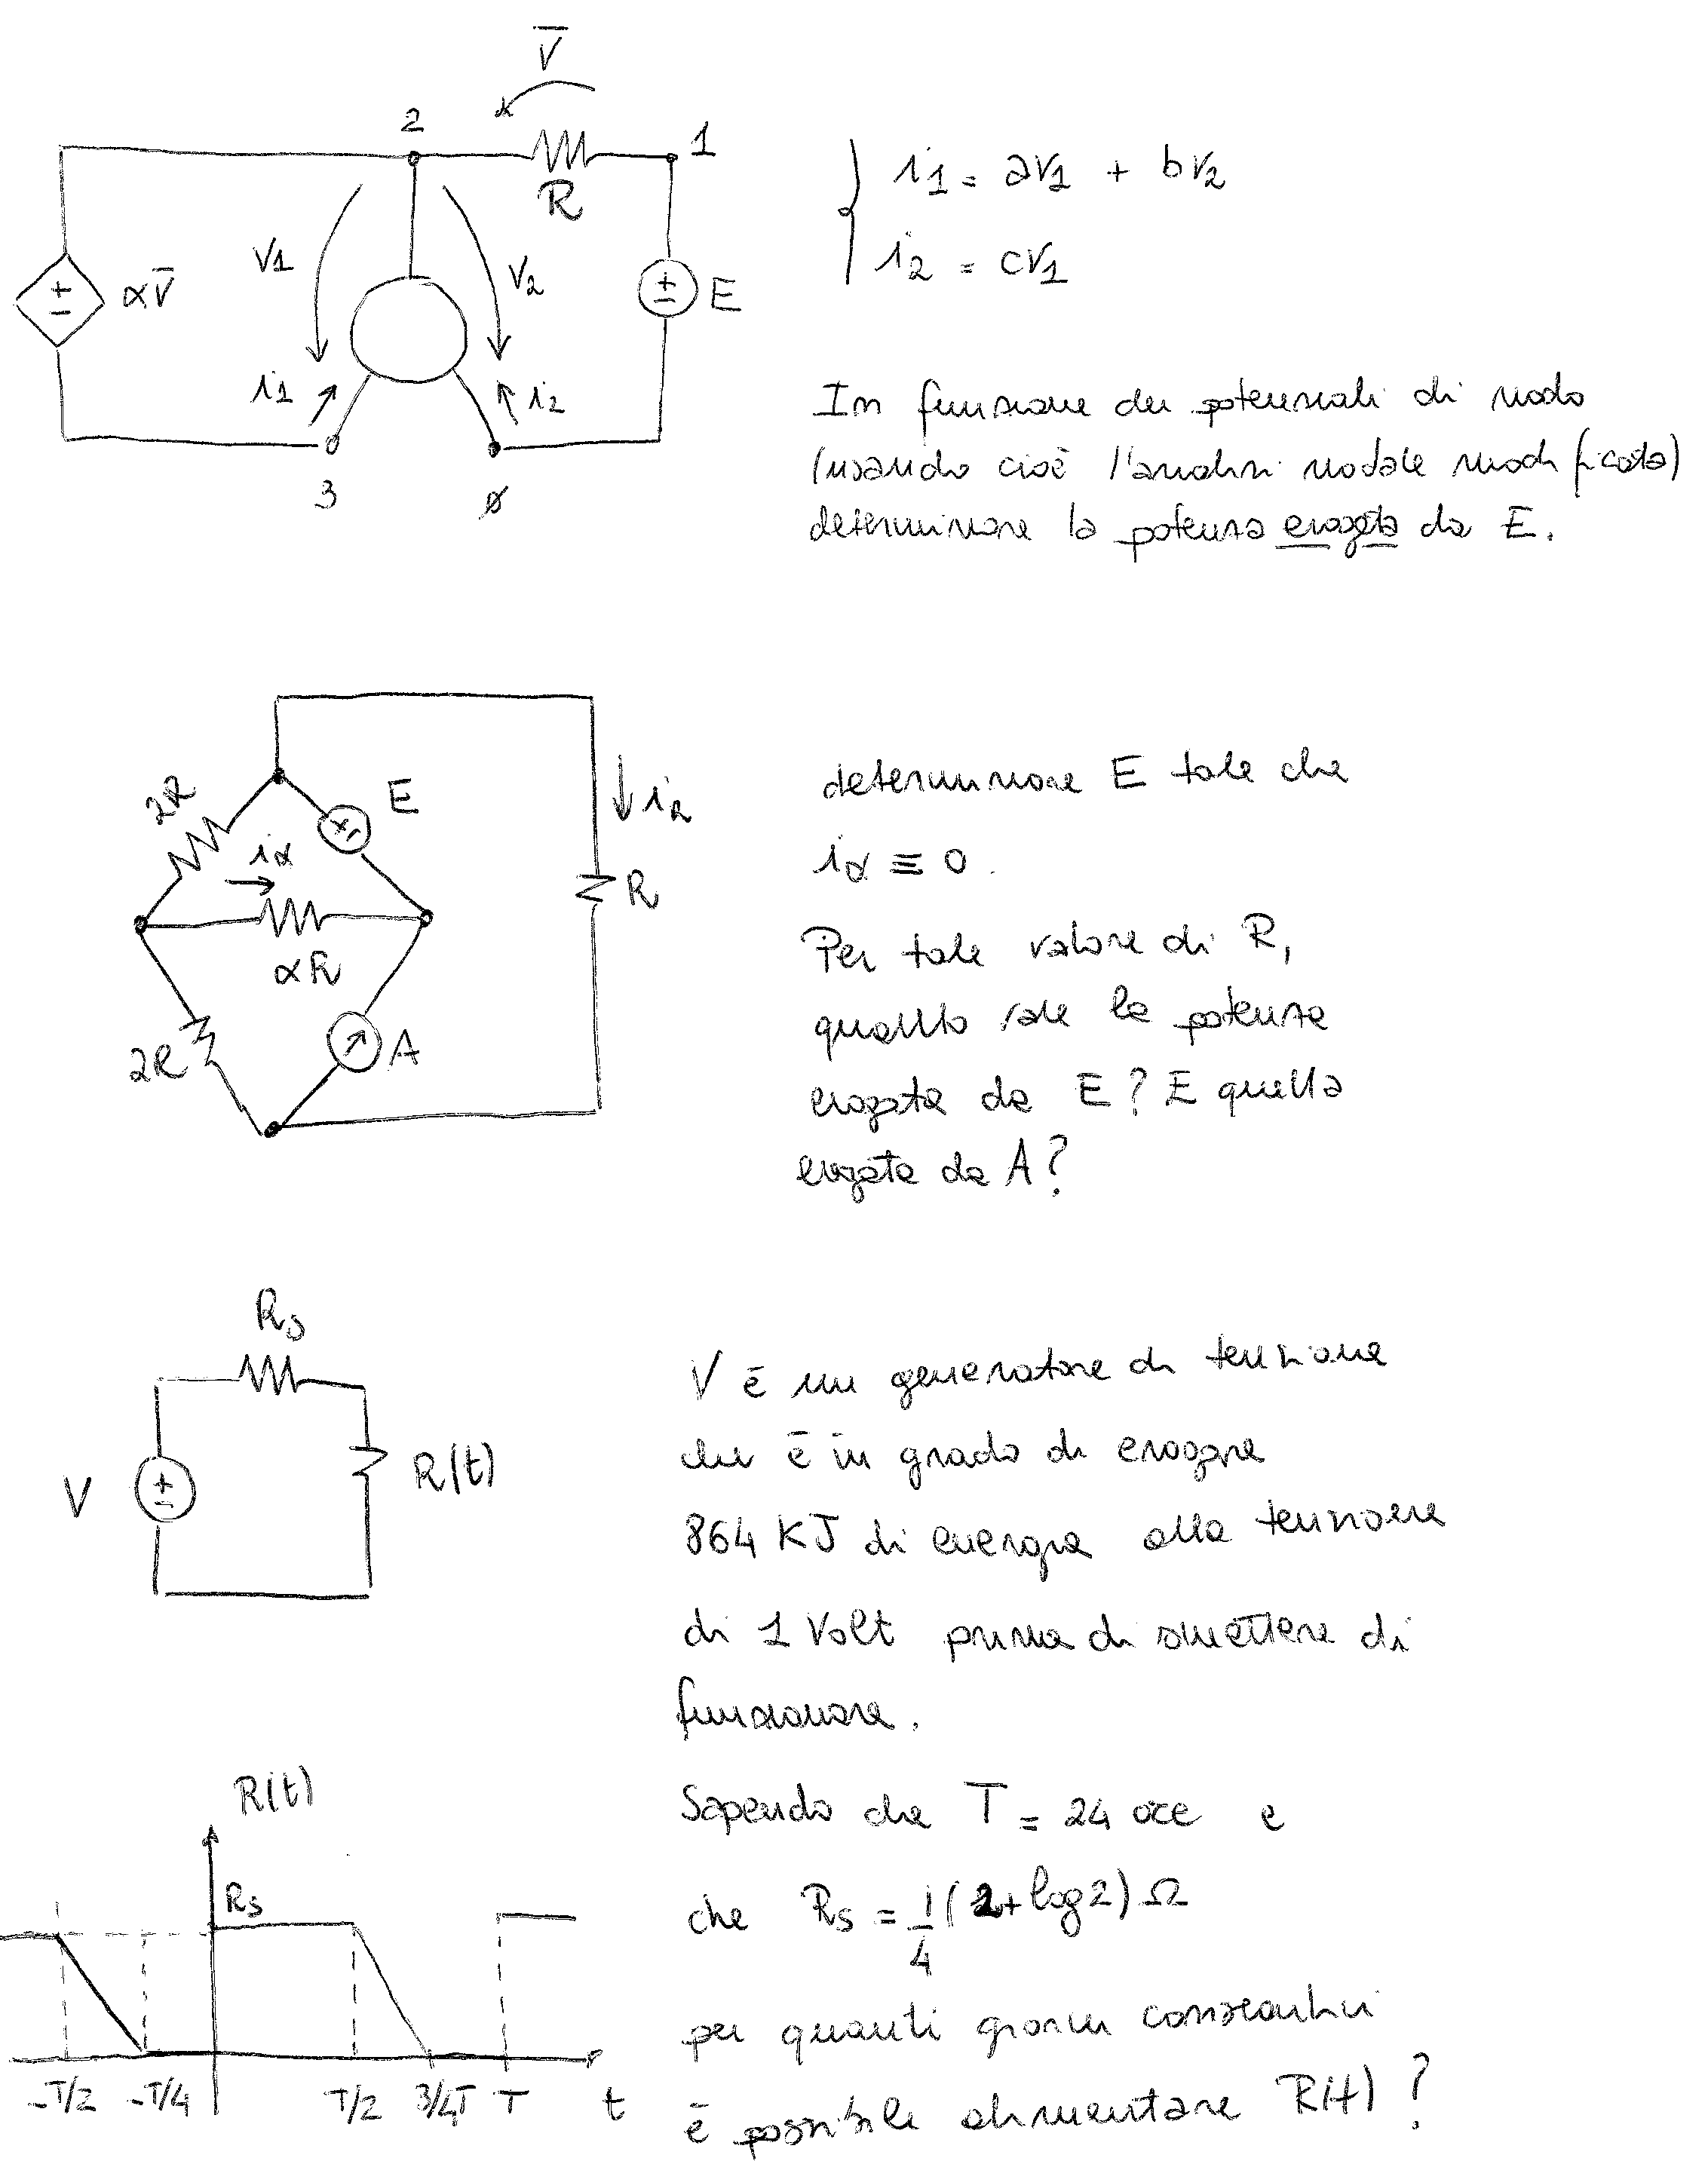 V̅
2
1
R
V1
V2
αV̅
E
i1
i2
3
ø
i1 = av1 + bv2
i2 = cv1
In funzione dei potenziali di nodo
(usando cioè l'analisi nodale modificata)
determinare la potenza erogata da E.
2R
E
iα
iR
R
αR
2R
A
determinare E tale che
iα ≡ 0.
Per tale valore di R,
quanto vale la potenza
erogata da E? E quella
erogata da A?
Rs
V
R(t)
V è un generatore di tensione
che è in grado di erogare
864 KJ di energia alla tensione
di 1 Volt prima di smettere di
funzionare.
Sapendo che T = 24 ore e
che Rs = 1/4 (2+log2) Ω
per quanti giorni consecutivi
è possibile alimentare R(t)?
R(t)
Rs
-T/2 -T/4 T/2 3/4T T t